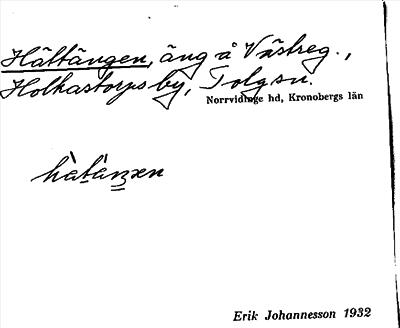 Hättängen, äng å Västreg.,
Holkastorps by, Tolg sn.
Norrvidinge hd, Kronobergs län
hàtáŋən
Erik Johannesson 1932